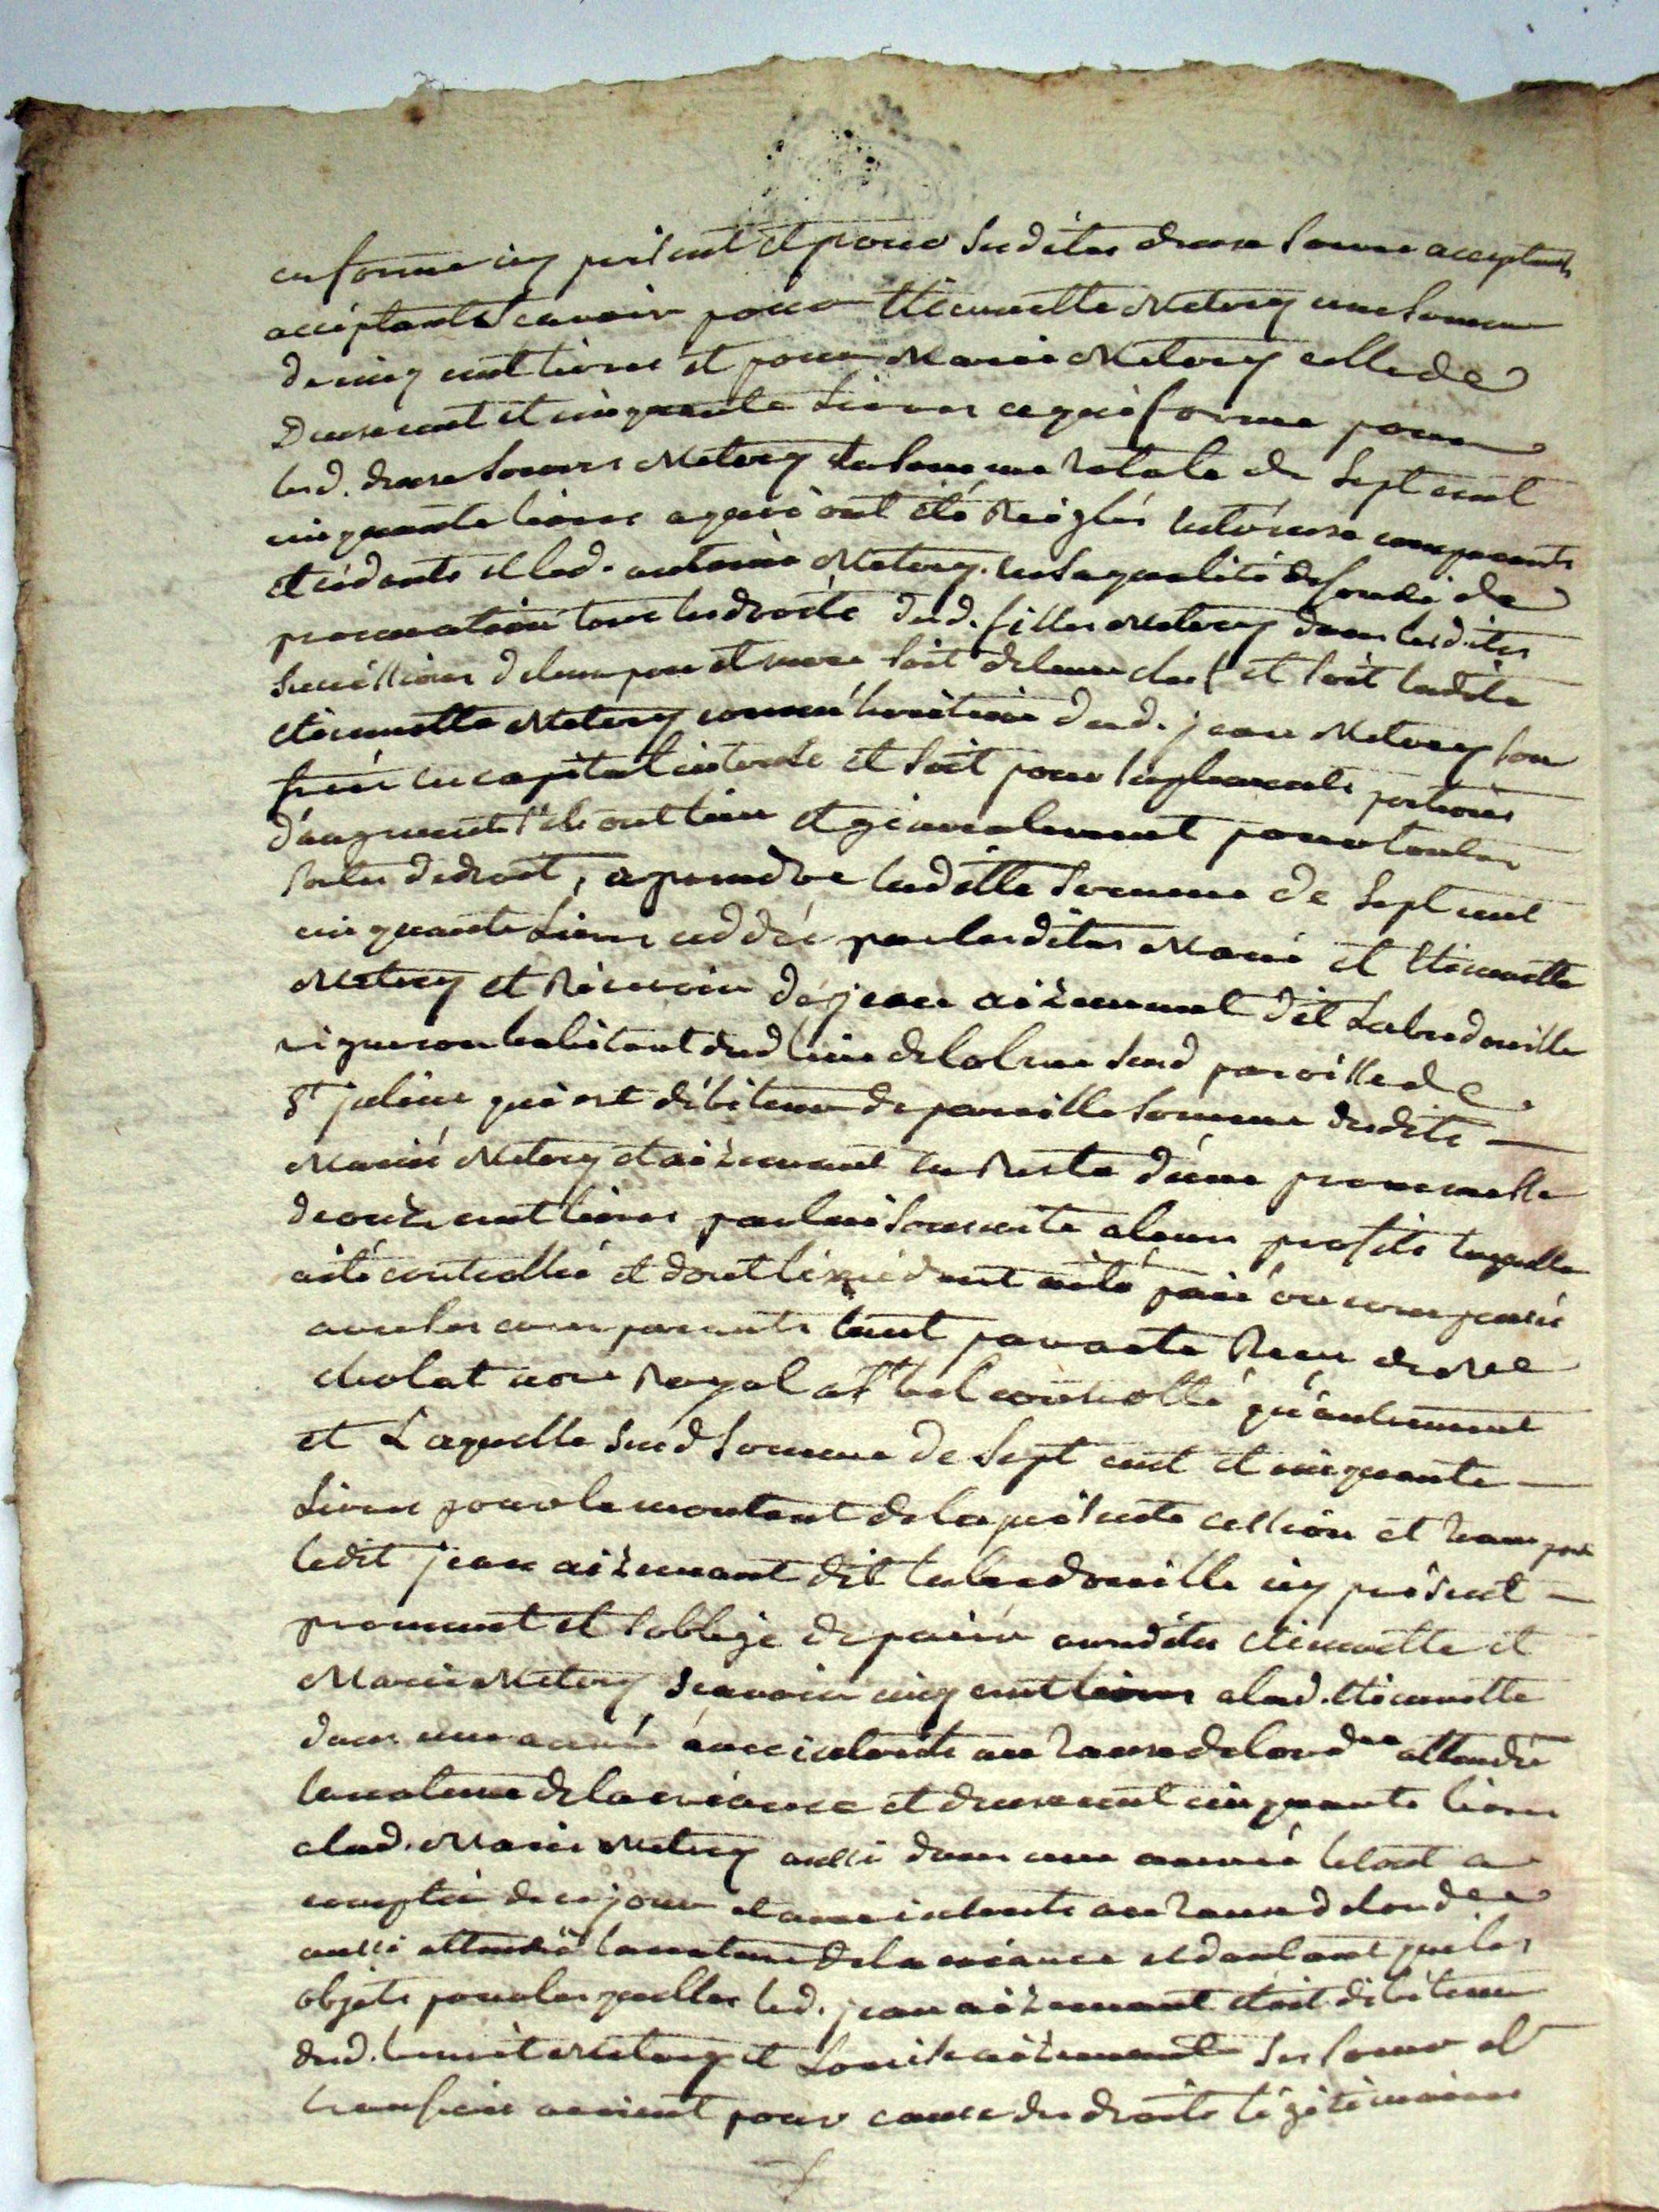 en forme icy present et pour sudites deux soeurs acceptants
acceptante scavoir pour Etiennette Metery une somme
de cinq cent livres et pour Marie Metery celle de
Deux cent et cinquante Livres ce qui forme pour
lesd. deux soeurs Metery la somme totale de sept cent
cinquante livres a quoi ont été reiglés entreux comparants
et cédants et led. antoine Metery en sa qualité de fondé de
procuration tous les droits desd. filles Metery dans lesdites
successions de leurs pere et mere soit de leur chef et soit ladite
Etiennette Metery comme héritiere dud. jean Metery son
frere en capital interets et soit pour suplements portions
d'augments s'ils ont lieu et généralement pour toutes
sortes de droit, a prendre laditte somme de sept cent
cinquante Livres cédée par lesdites Marie et Etiennette
Metery et recevoir de jean aizemant dit Labredouille
vigneron habitant dud lieu de susd paroisse de
St julien qui est débiteur de pareille somme desdits
Marie Metery et aizemant en reste d'une promesse
de onze cent livres par lui souscrite a leur profit laquelle
a été controllée et dont l'exédent a été paié ou compensé
avec les comparants tant par acte reçu de Me
cholat nore Royal controllé qu'autrement
et Laquelle susd somme de sept cent et cinquante
Livres pour le montant de la présente cession et transport
ledit jean aizemant dit labredouille icy présent
promment et s'oblige de paier auxdites etiennette et
Marie Metery scavoir cinq cent livres a lad. Etiennette
dans une année avec interets au taux de l'ordce attendu
la nature de la créance et deux cent cinquante livres
a lad. Marie Metery aussi dans une année le tout a
compter de ce jour et avec interets au taux de l'ordce
aussi attendu la nature de la créance et d'autant que les
objets pour lesquelles led. jean aizemant étoit débiteur
dud. benoit Metery et Louise aizemant sa soeur et
beaufrere avoient pour cause des droits légitimaires